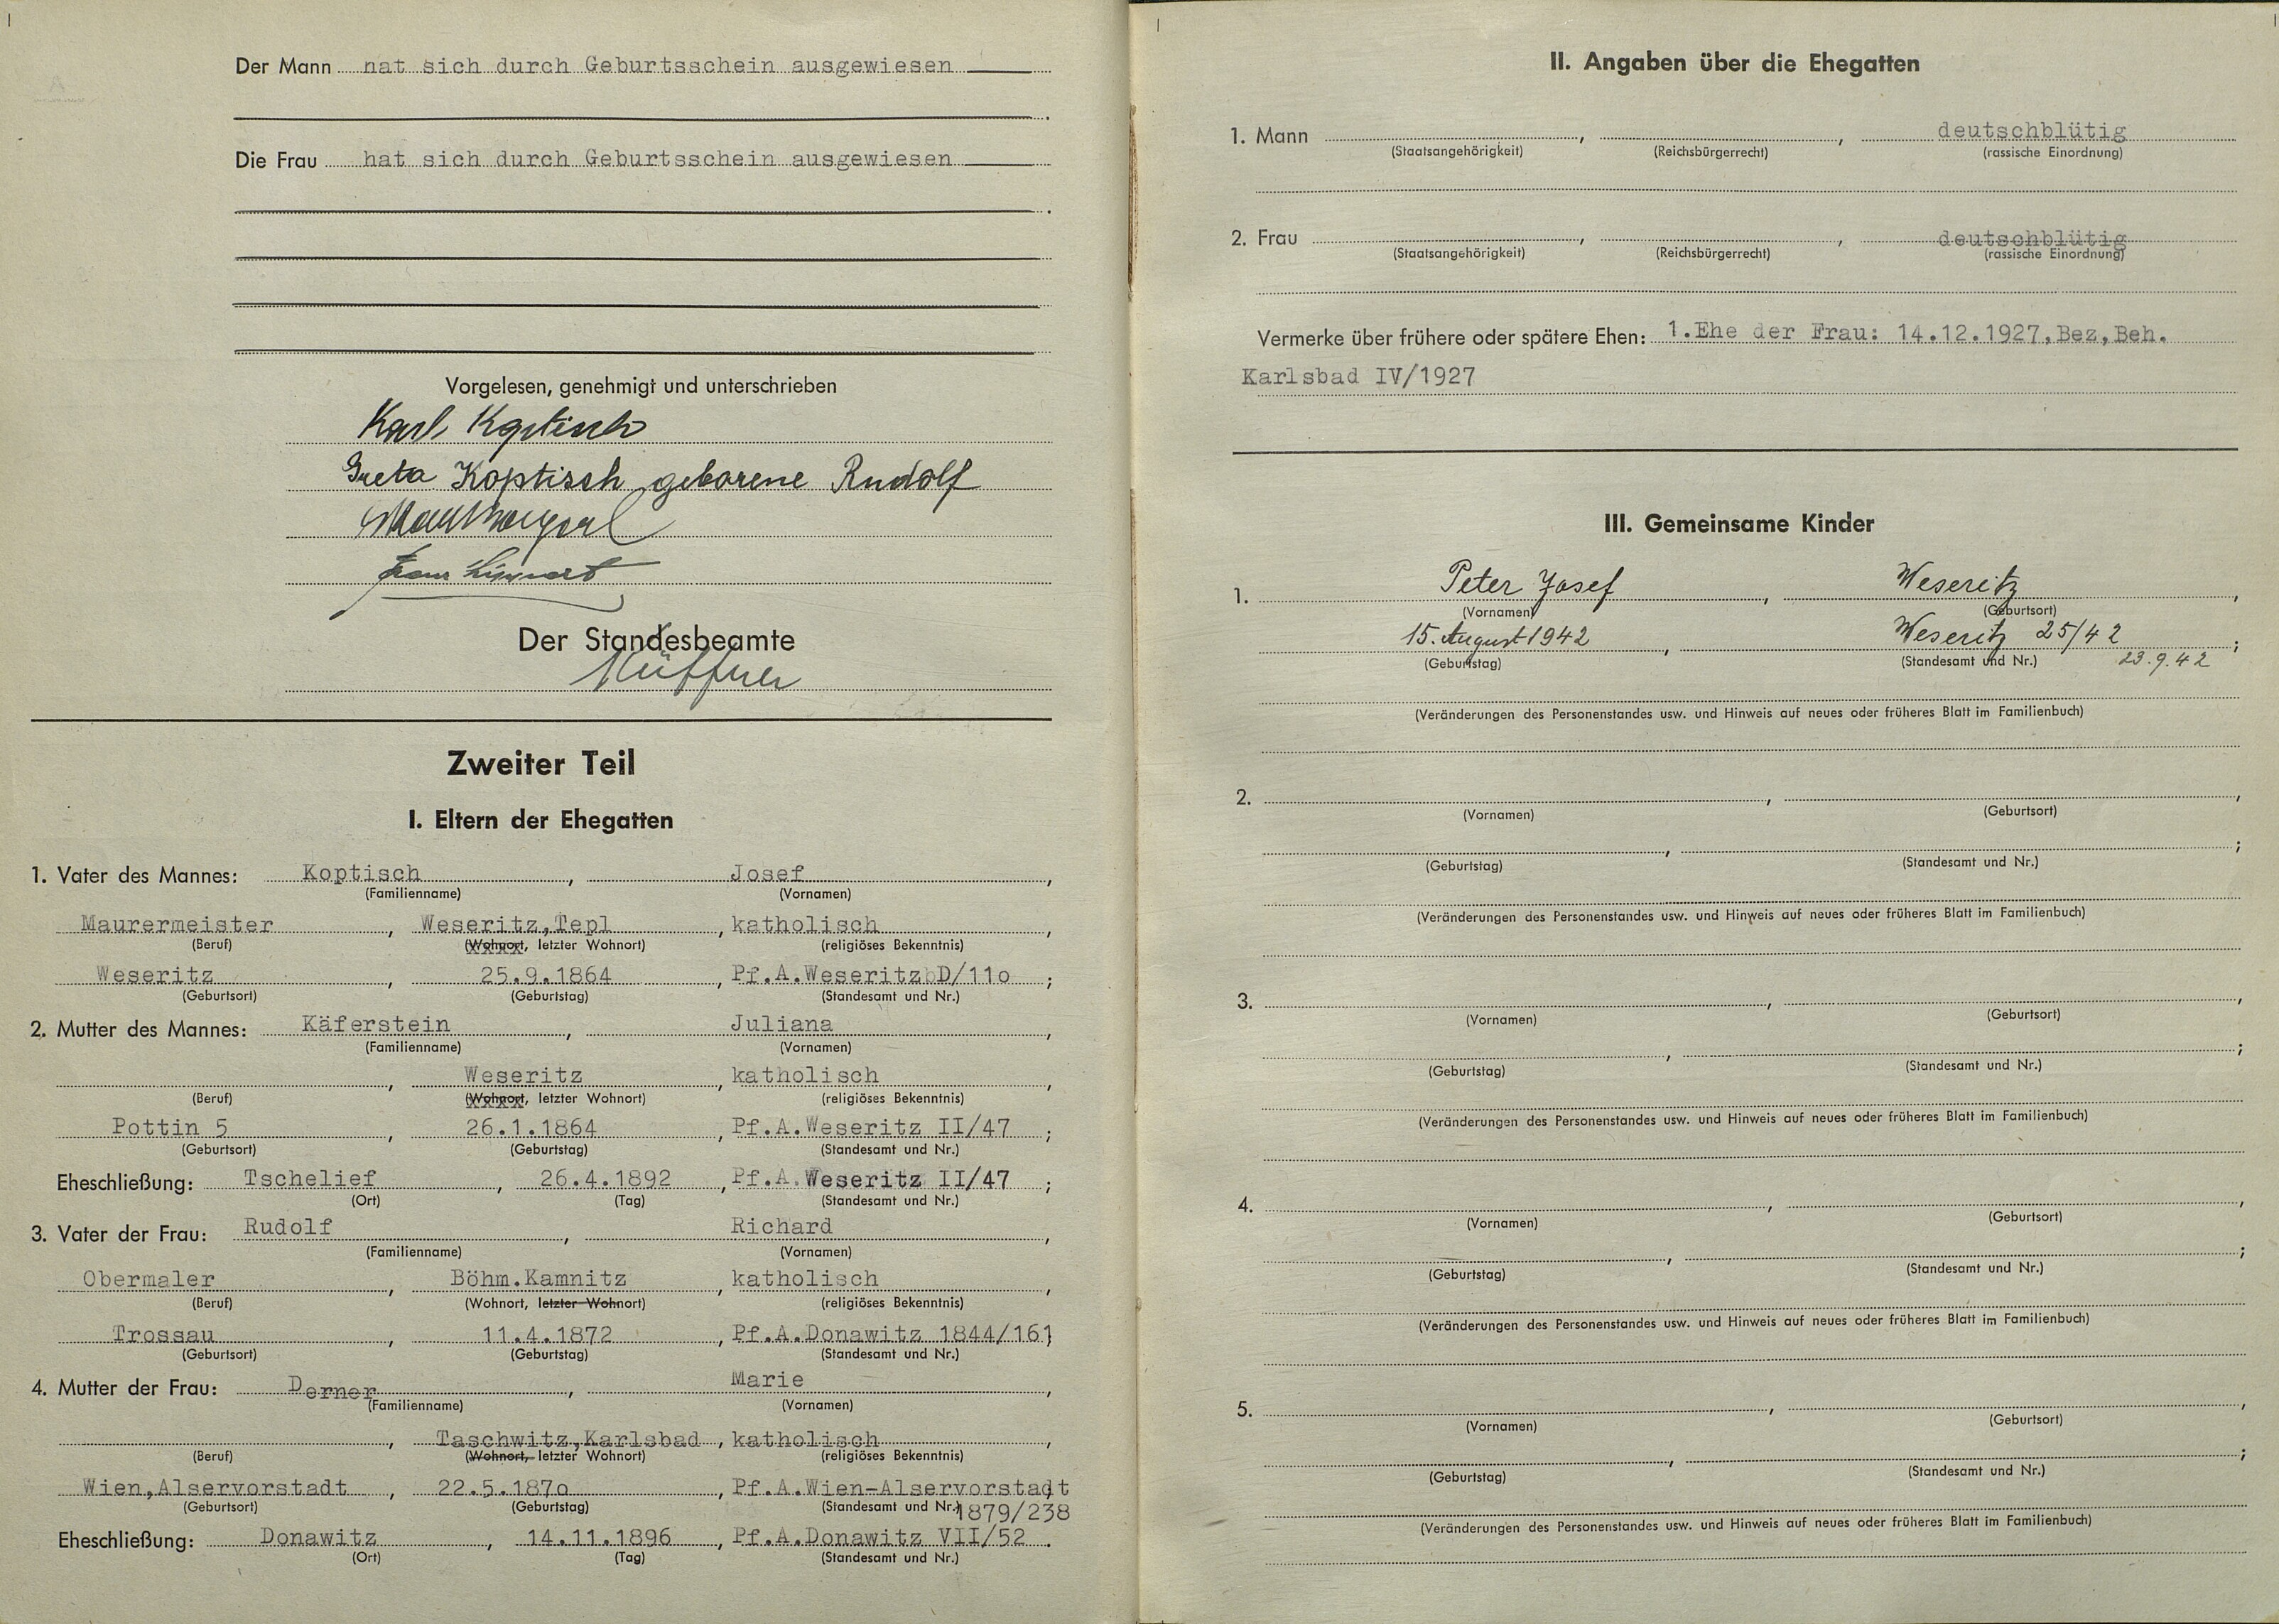 Der Mann nat sich durch Geburtsschein ausgewiesen
Die Frau hat sich durch Geburtsschein ausgewiesen
Vorgelesen, genehmigt und unterschrieben
Karl Koptisch
Greta Koptisch geborene Rudolf
Franz
Der Standesbeamte
Küffner
Zweiter Teil
I. Eltern der Ehegatten
1. Vater des Mannes: Koptisch, Josef,
(Familienname) (Vornamen)
Maurermeister, Weseritz,Tepl, katholisch,
(Beruf) (Wohnort, letzter Wohnort) (religiöses Bekenntnis)
Weseritz, 25.9.1864, Pf.A.Weseritz D/11o;
(Geburtsort) (Geburtstag) (Standesamt und Nr.)
2. Mutter des Mannes: Käferstein, Juliana,
(Familienname) (Vornamen)
, Weseritz, katholisch,
(Beruf) (Wohnort, letzter Wohnort) (religiöses Bekenntnis)
Pottin 5, 26.1.1864, Pf.A.Weseritz II/47;
(Geburtsort) (Geburtstag) (Standesamt und Nr.)
Eheschließung: Tschelief, 26.4.1892, Pf.A.Weseritz II/47;
(Ort) (Tag) (Standesamt und Nr.)
3. Vater der Frau: Rudolf, Richard,
(Familienname) (Vornamen)
Obermaler, Böhm.Kamnitz, katholisch,
(Beruf) (Wohnort, letzter Wohnort) (religiöses Bekenntnis)
Trossau, 11.4.1872, Pf.A.Donawitz 1844/161
(Geburtsort) (Geburtstag) (Standesamt und Nr.)
4. Mutter der Frau: Derner, Marie,
(Familienname) (Vornamen)
, Taschwitz,Karlsbad, katholisch,
(Beruf) (Wohnort, letzter Wohnort) (religiöses Bekenntnis)
Wien,Alservorstadt, 22.5.187o, Pf.A.Wien-Alservorstadt
(Geburtsort) (Geburtstag) (Standesamt und Nr.) 1879/238
Eheschließung: Donawitz, 14.11.1896, Pf.A.Donawitz VII/52.
(Ort) (Tag) (Standesamt und Nr.)
II. Angaben über die Ehegatten
1. Mann , , deutschblütig
(Staatsangehörigkeit) (Reichsbürgerrecht) (rassische Einordnung)
2. Frau , , deutschblütig
(Staatsangehörigkeit) (Reichsbürgerrecht) (rassische Einordnung)
Vermerke über frühere oder spätere Ehen: 1.Ehe der Frau: 14.12.1927,Bez,Beh.
Karlsbad IV/1927
III. Gemeinsame Kinder
1. Peter Josef, Weseritz,
(Vornamen) (Geburtsort)
15. August 1942, Weseritz 25/42;
(Geburtstag) (Standesamt und Nr.) 23.9.42
(Veränderungen des Personenstandes usw. und Hinweis auf neues oder früheres Blatt im Familienbuch)
2. , ,
(Vornamen) (Geburtsort)
, ;
(Geburtstag) (Standesamt und Nr.)
(Veränderungen des Personenstandes usw. und Hinweis auf neues oder früheres Blatt im Familienbuch)
3. , ,
(Vornamen) (Geburtsort)
, ;
(Geburtstag) (Standesamt und Nr.)
(Veränderungen des Personenstandes usw. und Hinweis auf neues oder früheres Blatt im Familienbuch)
4. , ,
(Vornamen) (Geburtsort)
, ;
(Geburtstag) (Standesamt und Nr.)
(Veränderungen des Personenstandes usw. und Hinweis auf neues oder früheres Blatt im Familienbuch)
5. , ,
(Vornamen) (Geburtsort)
, ;
(Geburtstag) (Standesamt und Nr.)
(Veränderungen des Personenstandes usw. und Hinweis auf neues oder früheres Blatt im Familienbuch)